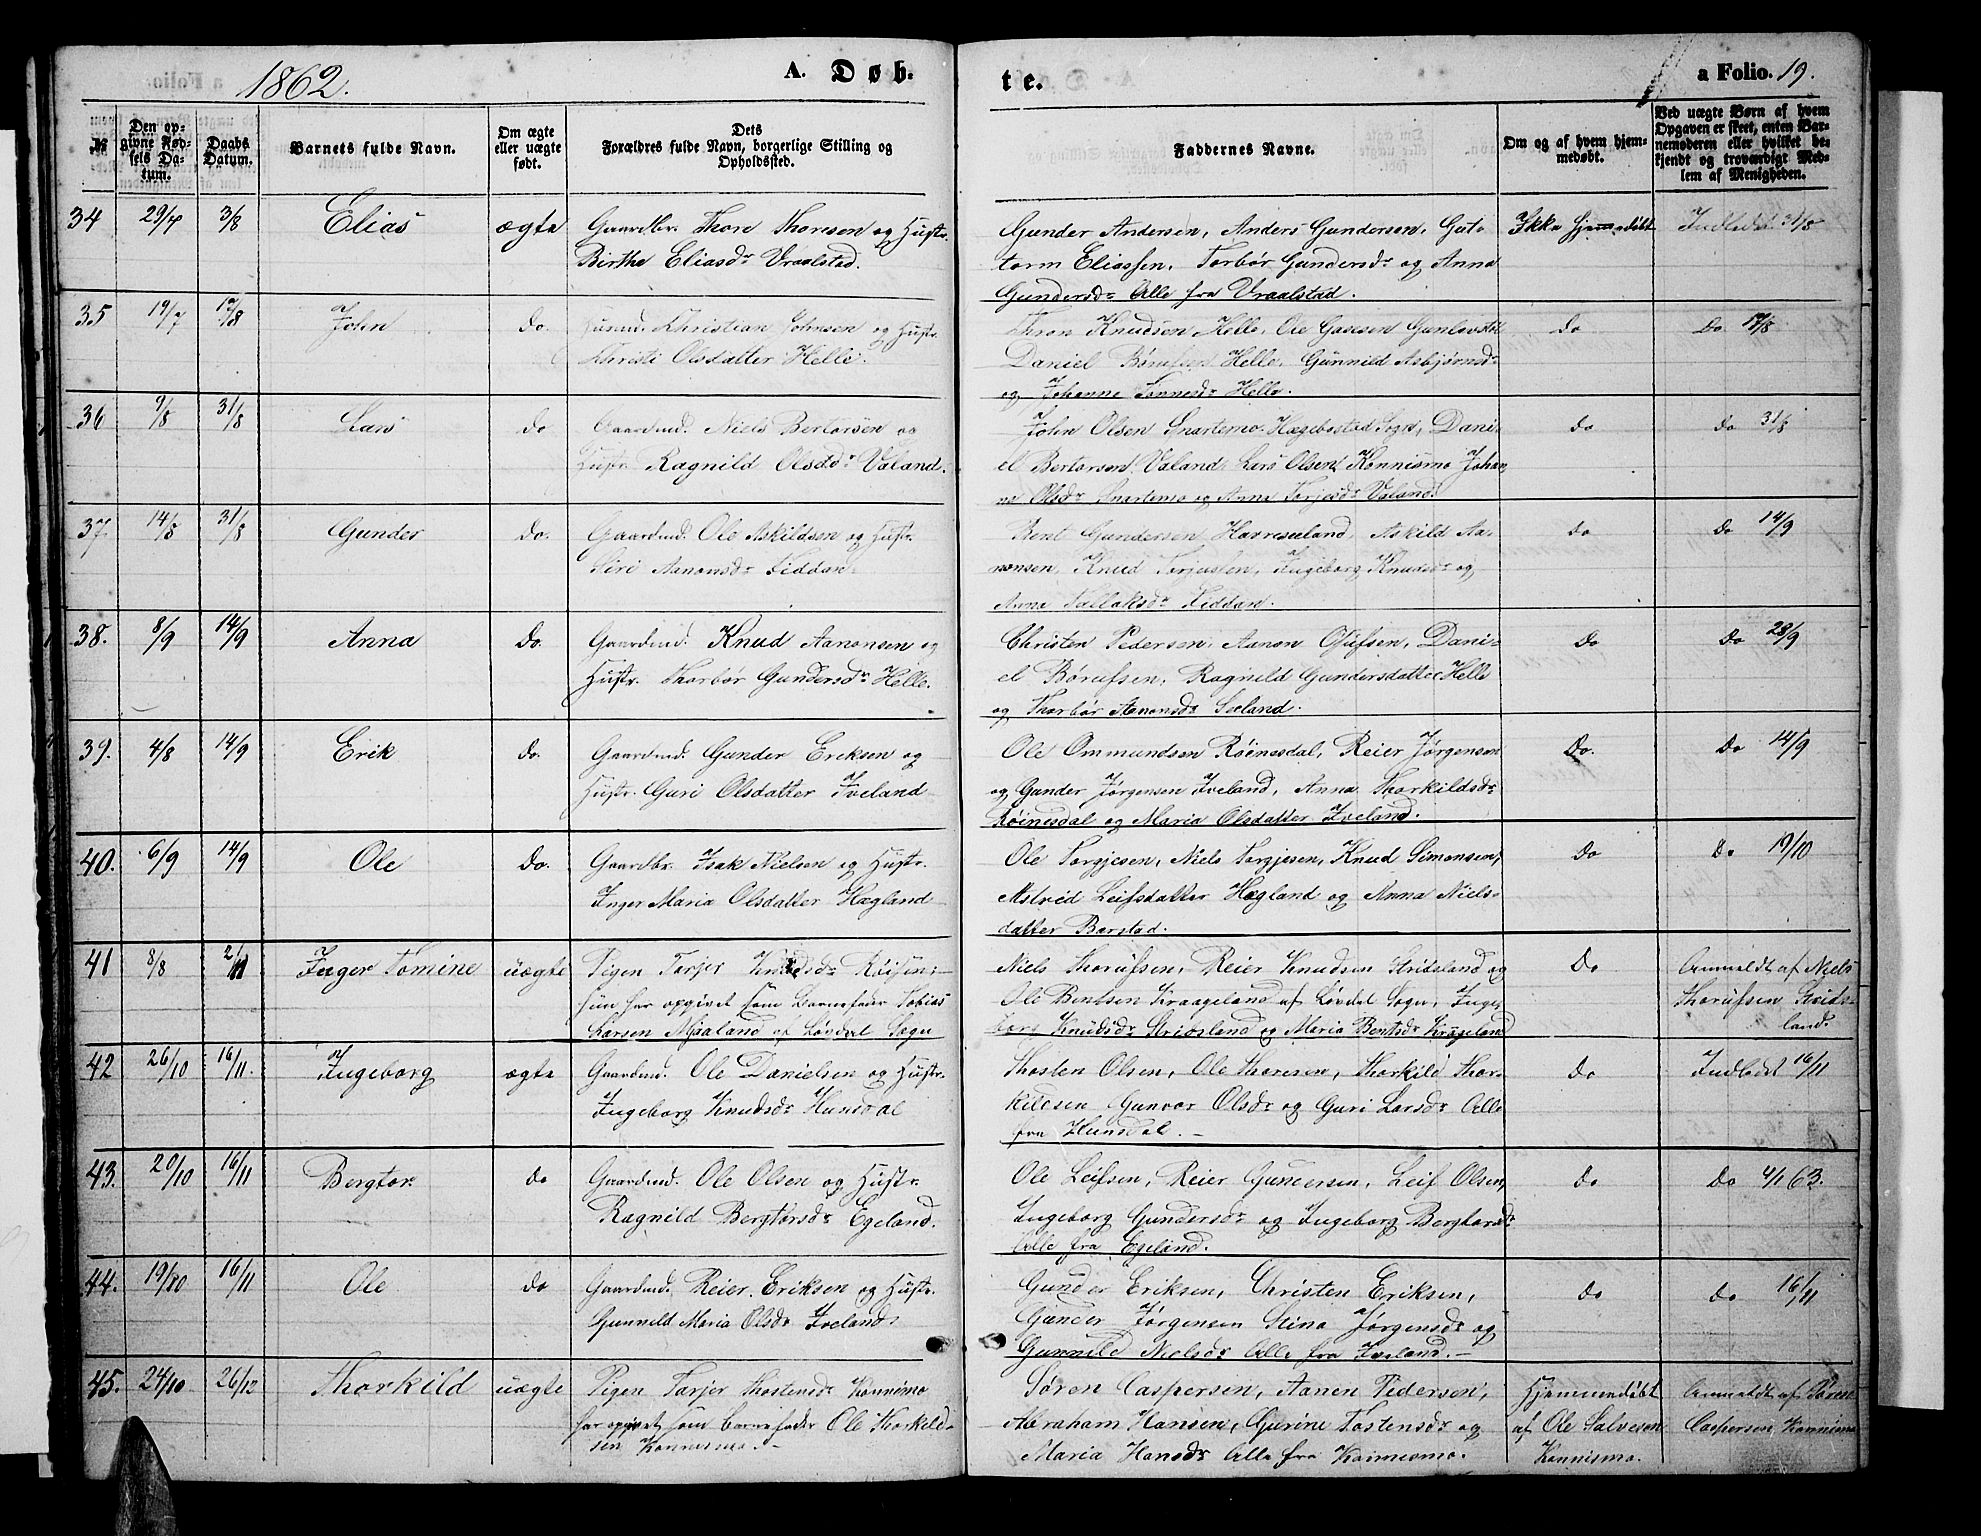 1862.
A. Døb-
te.
a Folio. 19.
№
Den op-
givne Fød-
sels Da-
tum.
Daabs
Datum.
Barnets fulde Navn.
Om ægte
eller uægte
født.
Dets
Forældres fulde Navn, borgerlige Stilling og
Opholdssted.
Faddernes Navne.
Om og af hvem hjem-
medøbt.
Ved uægte Børn af hvem
Opgaven er skeet, enten Bar-
nemoderen eller hvilket be-
kjendt og troværdigt Med-
lem af Menigheden.
34 29/7 3/8 Elias ægte
Gaardbr. Thore Thoresen og Hustr.
Birthe Eliasdr Vraalstad.
Gunder Andersen, Anders Gundersen, Gut-
torm Eliassen, Torbør Gundersdr og Anna
Gundersdr Alle fra Vraalstad.
Ikke hjemmedöbt
Indledet 31/8
35 19/7 17/8 John do.
Huusmd. Christian Johnsen og Hustr.
Christi Olsdatter Helle.
Knudsen Helle, Ole
Daniel Børufsen Helle, Gunnild Asbjørnsdr
og Johanne Tønnesdr Helle.
do
do 17/8
36 9/8 31/8 Lars do
Gaardmd. Niels Bertorsen og
Hustr. Ragnild Olsdr Valand.
John Olsen Snartemo Hægebostad Sogn, Dani-
el Bertorsen Valand, Lars Olsen Konnismo Johan
na Olsdr Snartemo og Anna Torjesdr Valand.
do
do 31/8
37. 14/8 31/8 Gunder do.
Gaardmd. Ole Askildsen og Hustr.
Siri Aanonsdr Fiddan
Bent Gundersen Askild Aa-
nonsen, Knud Torjussen, Ingeborg Knudsdr og
Anna Tallaksdr Fiddan.
do
do 14/9
38. 8/9 14/9 Anna do.
Gaardmd. Knud Aanonsen og
Hustr. Thorbør Gundersdr Helle.
Christen Pedersen, Aanon Olufsen, Dani-
el Børufsen, Ragnild Gundersdatter Helle
og Thorbör Aanonsdr Sæland.
do
do 28/9
39. 4/8 14/9 Erik do.
Gaardmd. Gunder Eriksen og
Hustr. Guri Olsdatter Iveland
Ole Ommundsen Röinesdal, Reier Jørgensen
og Gunder Jørgensen Iveland, Anna Thorkildsdr
Röinesdal og Maria Olsdatter Iveland.
do.
do 14/9
40. 6/9 14/9 Ole do.
Gaardbr. Isak Nielsen og Hustr.
Inger Maria Olsdatter Hægland
Ole Torgjesen, Niels Torgjesen, Knud Simonsen,
Astrid Leifsdatter Hægland og Anna Niels-
datter Barstad.
do
do 19/10
41 8/8 2/11 Inger Tomine uægte
Pigen Torjer Knudsdr Röisen;
hun har opgivet som Barnefader Tobias
Larsen Mjaaland af Løvdal Sogn
Niels Thorufsen, Reier Knudsen Stridsland og
Ole Bentsen Kraageland af Løvdal Sogn, Inge
borg Knudsdr Stridsland og Maria Bentsdr Krageland
do
Anmeldt af Niels
Thorufsen Strids-
land.
42 26/10 16/11. Ingeborg ægte
Gaardmd. Ole Danielsen og Hustr.
Ingeborg Knudsdr Hunsdal
Thosten Olsen, Ole Thoresen, Thorkild Thor-
kildsen Gunvor Olsdr og Guri Larsdr Alle
fra Hunsdal. —
do
Indledt 16/11
43. 20/10 16/11 Bergtor. do
Gaardmd. Ole Olsen og Hustr.
Ragnild Bergtorsdr Egeland.
Ole Leifsen, Reier Gundersen, Leif Olsen,
Ingeborg Gundersdr og Ingeborg Bergtorsdr
Alle fra Egeland.
do
do 4/1 63.
44. 19/10 16/11 Ole do
Gaardmd. Reier Eriksen og Hustr.
Gunnild Maria Olsdr Iveland.
Gunder Eriksen, Christen Eriksen,
Gunder Jørgensen Stina Jørgensdr og
Gunnild Nielsdr Alle fra Iveland. —
do
do 16/11
45. 24/10 26/12 Thorkild uægte
Pigen Torjer Thostensdr Konnismo
har opgivet som Barnefader Ole Thorkild-
sen Konnismo. —
Søren Caspersen, Aanen Pedersen,
Abraham Hansen, Gurine Tostensdr og
Maria Hansdr Alle fra Konnismo.
Hjemmedöbt
af Ole Salvesen
Konnismo.
Anmeldt af Søren
Caspersen Konnismo